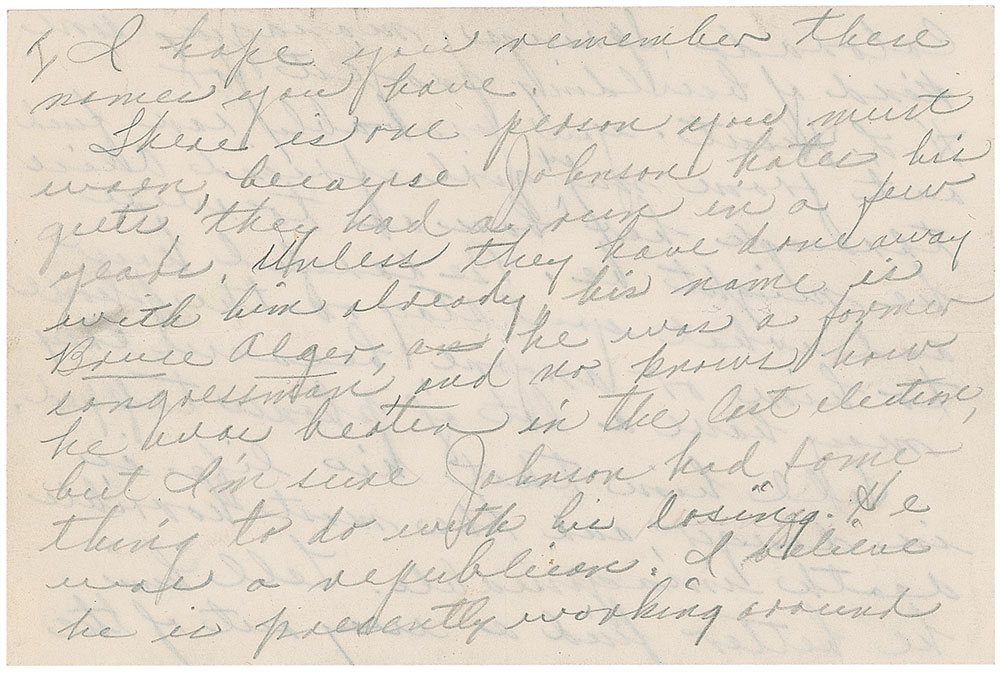 I, I hope you remember these
names you have.
There is one person you must
warn, because Johnson hates his
guts, they had a run in a few
years. Unless they have done away
with him already, his name is
Bruce Alger, as he was a former
congressman, and no knows how
he was beaten in the last election,
but I'm sure Johnson had some-
thing to do with his losing. He
was a republican. I believe
he is presently working around